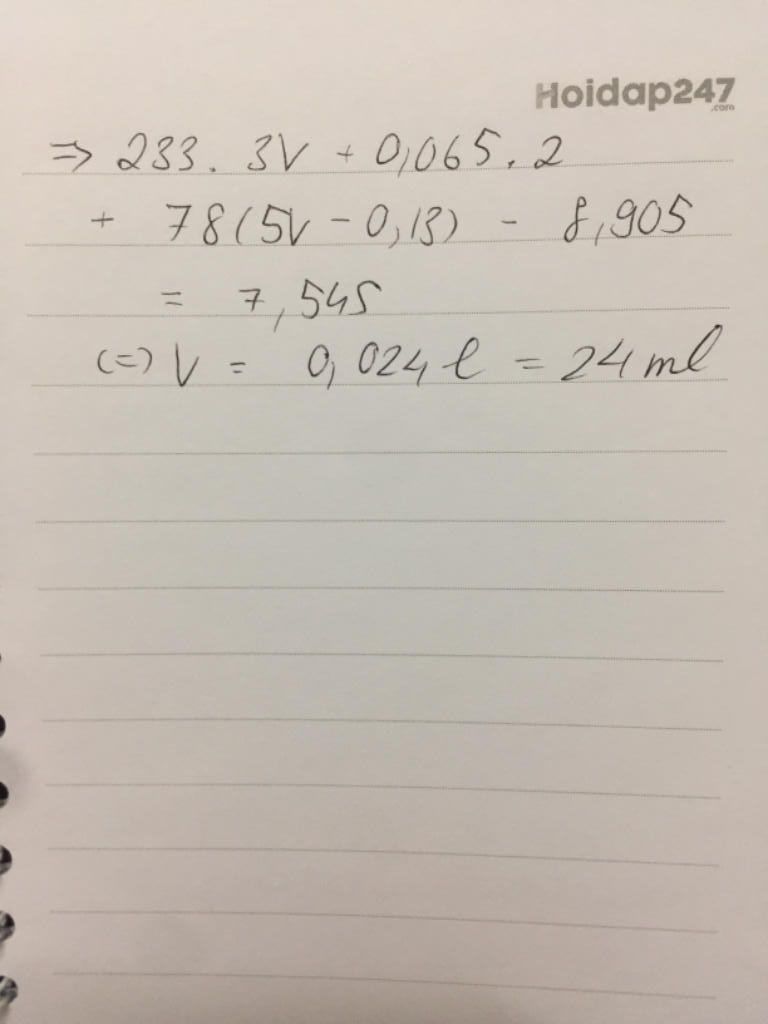 Hoidap247
.com
=> 233. 3V + 0,065. 2
+ 78(5V - 0,13) - 8,905
= 7,545
(=) V = 0,024 l = 24 ml